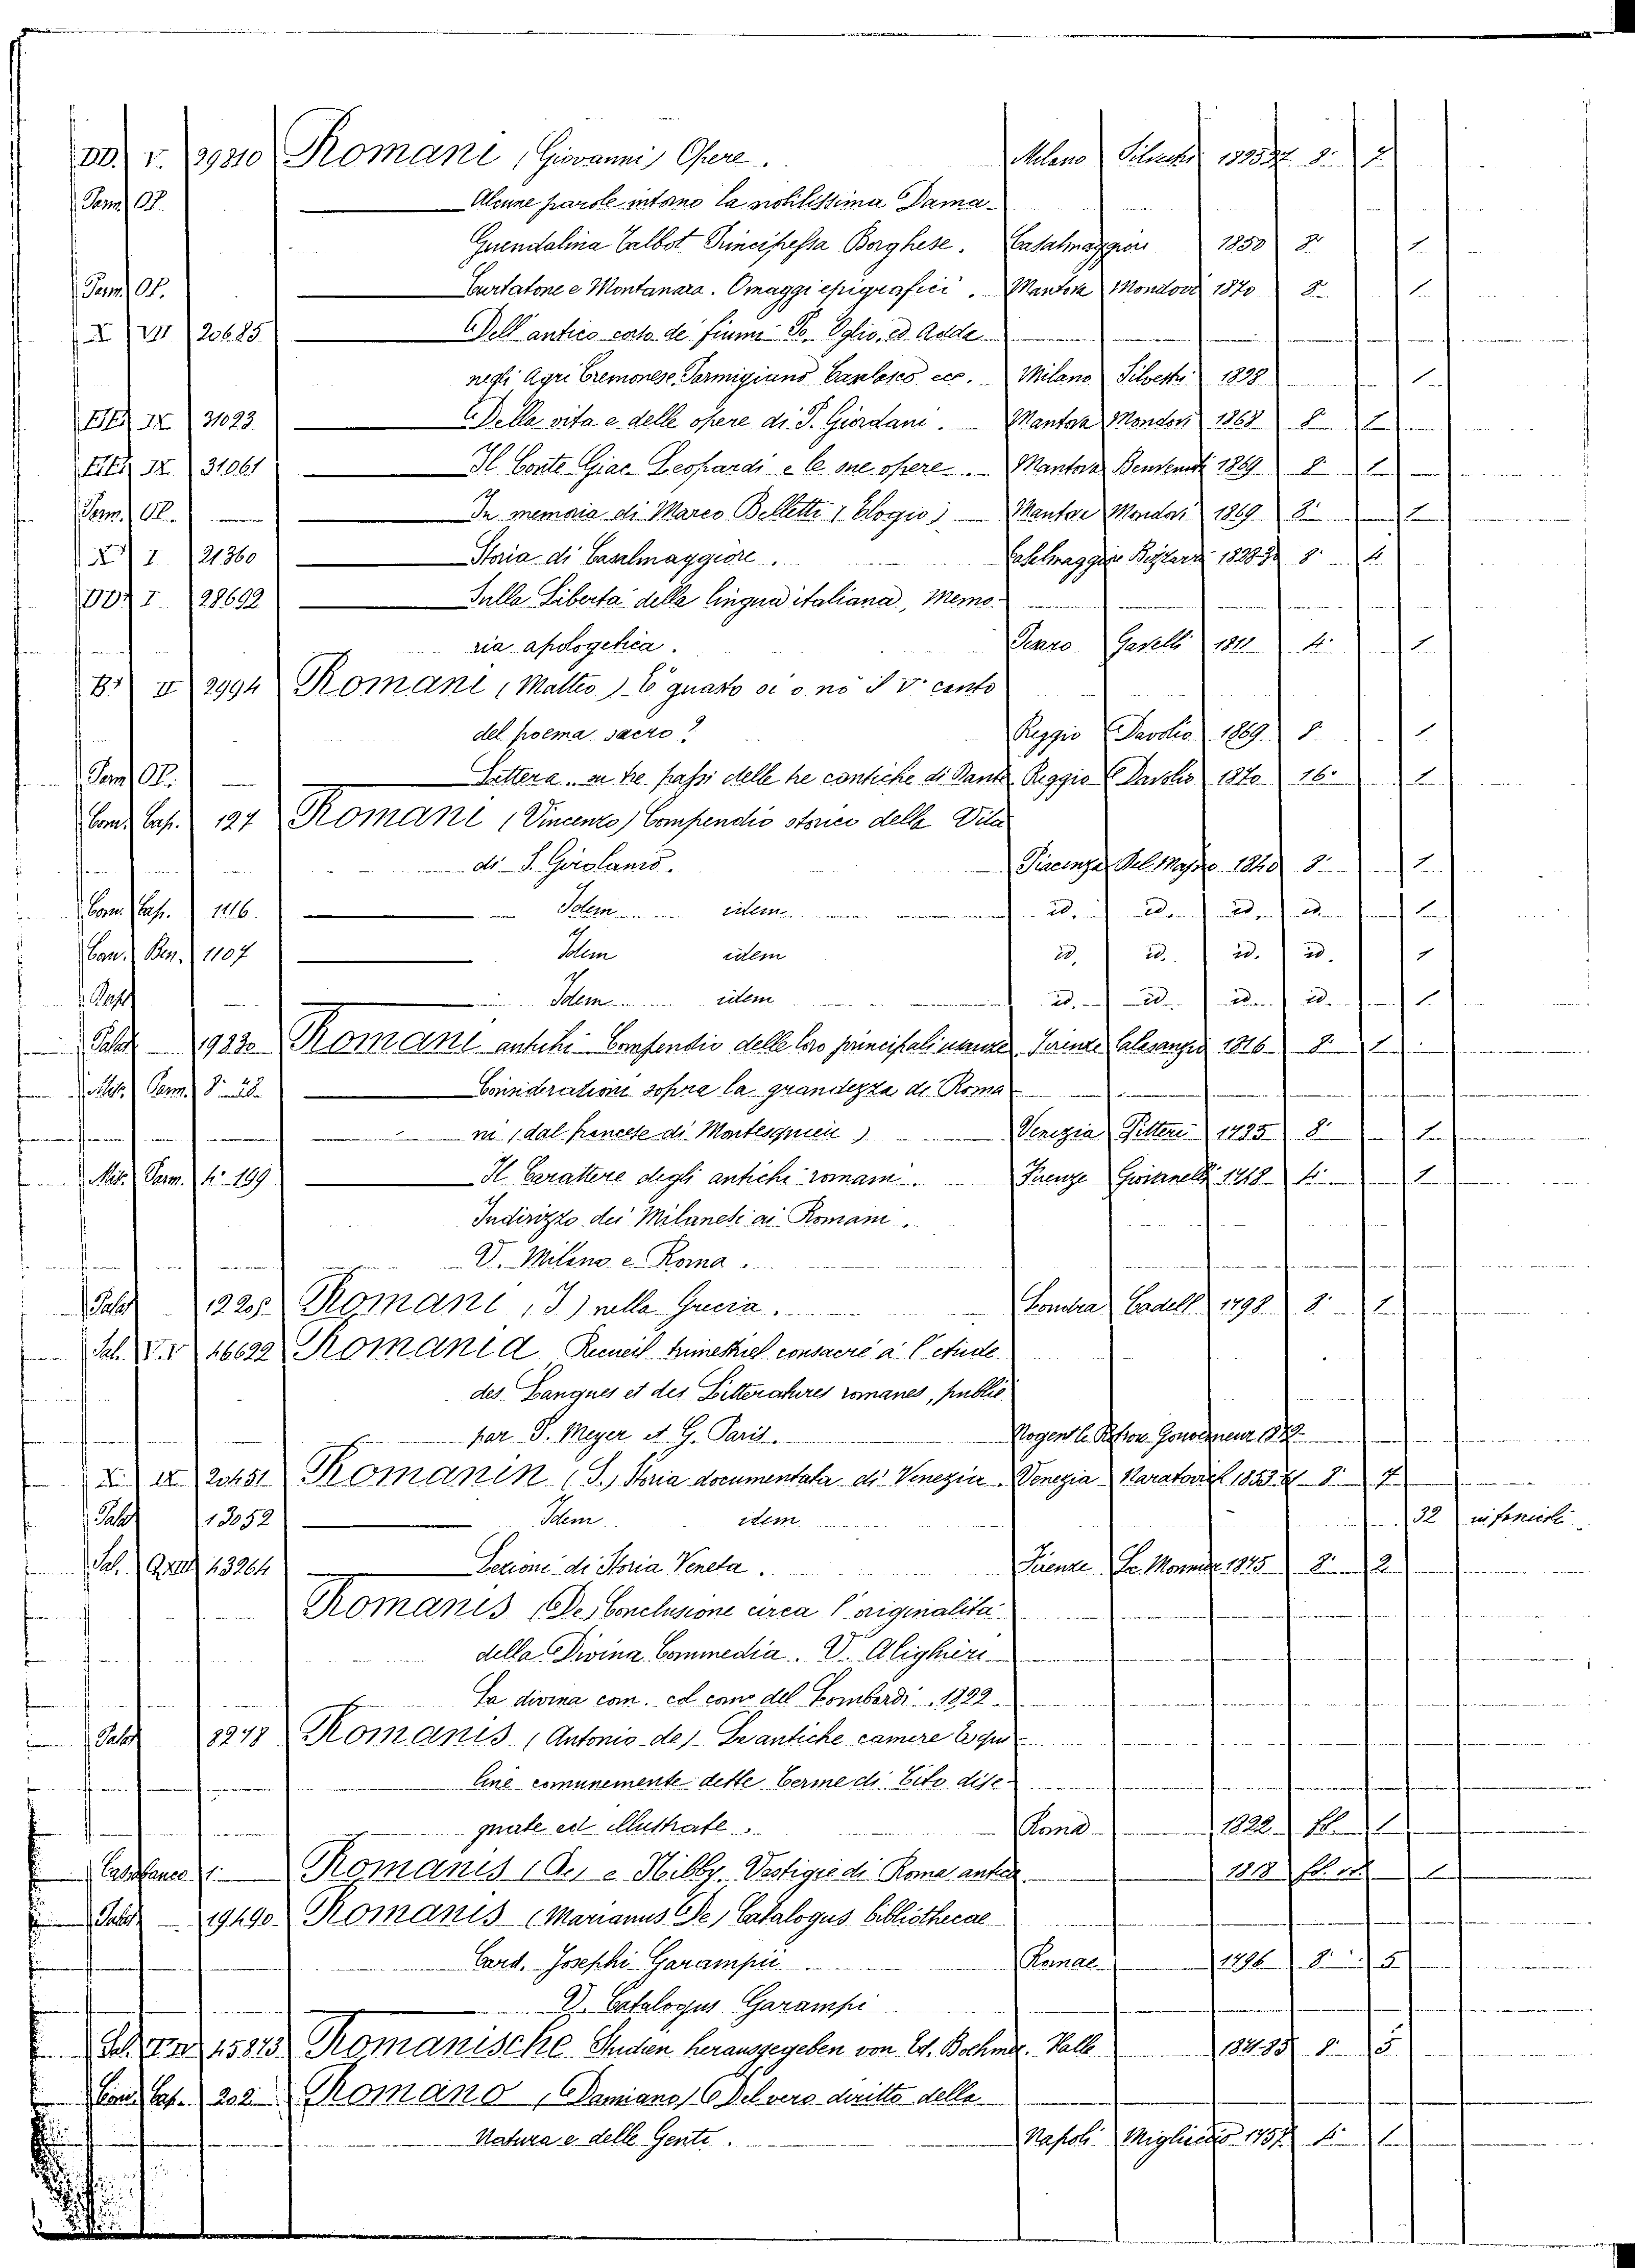 DD. V. 29310 Romani (Giovanni) Opere. Milano Silvestri 1825 27 8° 7
Parm. Op. Alcune parole intorno la nobilissima Dama
Guendalina Talbot Principessa Borghese. Casalmaggiore 1850 8° 1
Parm. Op. Curtatone e Montanara. Omaggi epigrafici. Mantova Mondovi 1870 8. 1
X VII 20685 Dell'antico corso de' fiumi Po, Oglio, ed Adda
negli Agri Cremonese, Parmigiano Casalasco ecc. Milano Silvestri 1828 1
IX 31023. Della vita e delle opere di P. Giordani. Mantova Mondovi 1868 8 1
IX 31061 Il Conte Giac. Leopardi e le sue opere. Mantova 1869 8 1
Parm. Op. In memoria di Marco Belletti (Elogio) Mantova Mondovi 1869 8° 1
X I 21360 Storia di Casalmaggiore. Casalmaggiore Bizzarri 1828 30 8°
DD. I. 28692 Sulla Libertà della lingua italiana, Memo-
ria apologetica. Pesaro Gavelli 1811 4° 1
B. II 2994 Romani (Matteo) È guasto sì o nò il V° canto
del poema sacro? Reggio Davolio 1869. 8. 1
Parm. Op. Lettera su tre passi delle tre cantiche di Dante Reggio Davolio 1870 16° 1
Com. Cap. 127 Romani (Vincenzo) Compendio storico della Vita
di S. Girolamo. Piacenza Del Majno 1840 8° 1
Com. Cap. 1116. Idem idem id. id. id. id. 1
Can. Ben. 1107 Idem idem id. id. id. id. 1
Idem idem id. id. id. id. 1
Palat. 19830 Romani antichi Compendio delle loro principali usanze Firenze Calasanzio 1816 8. 1
Mis. Parm. 8° 28. Considerationi sopra la grandezza de' Roma-
ni (dal francese di Montesquieu) Venezia Pitteri 1735 8° 1
Mis. Parm. 4° 199 Il Carattere degli antichi romani. Firenze Giovanelli 1718 4° 1
Indirizzo dei Milanesi ai Romani.
V. Milano e Roma.
Palat. 12205 Romani (I) nella Grecia. Londra Cadell 1798 8° 1
Sal. V. V 16622 Romania Recueil trimestriel consacré à l'etude
des Langues et des Litteratures romanes, publié
par P. Meyer et G. Paris. Nogent le Rotrou Gouverneur 1872
X IX 20451 Romanin (S.) Storia documentata di Venezia Venezia Naratovich 1853 61 8° 7
Palat. 13052 Idem idem 32 in fascicoli
Sal. 13264 Lezioni di Storia Veneta. Firenze Le Monnier 1875 8° 2
Romanis (De) Conclusione circa l'originalità
della Divina Commedia. V. Alighieri
La divina com. col com° del Lombardi. 1822.
Palat. 8278 Romanis (Antonio de) Le antiche camere Esqui-
line comunemente dette Terme di Tito dise-
gnate ed illustrate. Roma 1822 fol. 1
1. Romanis (De) e Nibby. Vestigie di Roma antica 1818 1
Palat. 19490 Romanis (Marianus De) Catalogus bibliothecae
Card. Josephi Garampii Romae 1796 8° 5
V. Catalogus Garampi
Sal. 15873 Romanische Studien herausgegeben von Ed. Boehmer. Halle 8. 5
Com. Cap. 202 Romano (Damiano) Del vero diritto della
Natura e delle Genti. Napoli Migliaccio 1757 4° 1